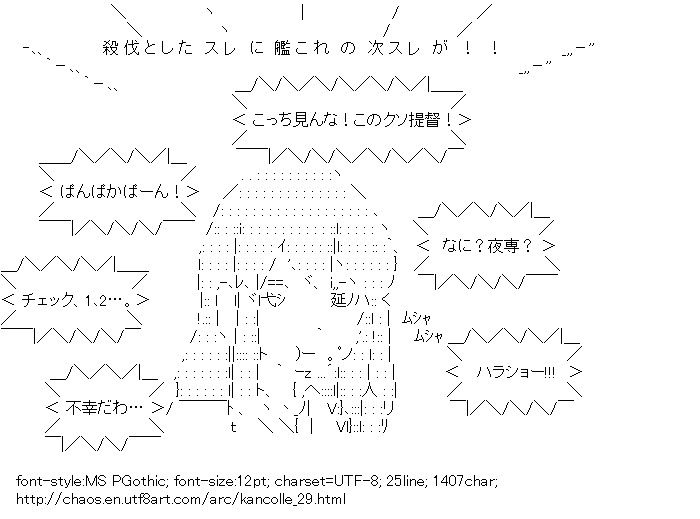 殺伐としたスレに艦これの次スレが！！
こっち見んな！このクソ提督！
ぱんぱかぱーん！
なに？夜専？
チェック、1、2…。
ムシャ
ムシャ
ハラショー!!!
不幸だわ…
font-style:MS PGothic; font-size:12pt; charset=UTF-8; 25line; 1407char;
http://chaos.en.utf8art.com/arc/kancolle_29.html